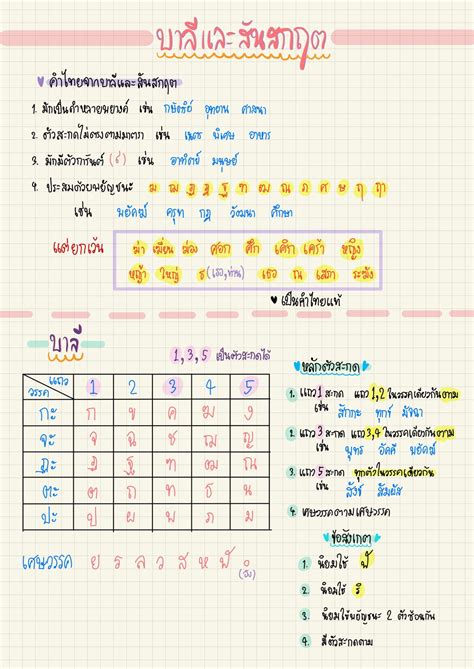 บาลีและสันสกฤต
คำไทยจากบาลีและสันสกฤต
1. มักเป็นคำหลายพยางค์ เช่น กษัตริย์ อุทยาน ศาสนา
2. ตัวสะกดไม่ตรงตามมาตรา เช่น เพชร พิเศษ อาหาร
3. มักมีตัวการันต์ (์) เช่น อาทิตย์ มนุษย์
4. ประสมด้วยพยัญชนะ ฆ ฌ ฎ ฏ ฐ ฑ ฒ ณ ภ ศ ษ ฤ ฤๅ
เช่น พยัคฆ์ ครุฑ กฎ วัฒนา ศึกษา
แต่ยกเว้น
ฆ่า เฆี่ยน ฆ้อง ศอก ศึก เศิก เศร้า หญิง
หญ้า ใหญ่ ธ (เธอ,ท่าน) เธอ ณ เสภา ระฆัง
เป็นคำไทยแท้
บาลี
1,3,5 เป็นตัวสะกดได้
แถว
วรรค 1 2 3 4 5
กะ ก ข ค ฆ ง
จะ จ ฉ ช ฌ ญ
ฏะ ฏ ฐ ฑ ฒ ณ
ตะ ต ถ ท ธ น
ปะ ป ผ พ ภ ม
เศษวรรค ย ร ล ว ส ห ฬ ํ
(อัง)
หลักตัวสะกด
1. แถว 1 สะกด แถว 1,2 ในวรรคเดียวกันตาม
เช่น สักกะ ทุกข์ มัจฉา
2. แถว 3 สะกด แถว 3,4 ในวรรคเดียวกันตาม
เช่น พุทธ อัคคี พยัคฆ์
3. แถว 5 สะกด ทุกตัวในวรรคเดียวกัน
เช่น สังข์ สัมผัส
4. เศษวรรคตามเศษวรรค
ข้อสังเกต
1. นิยมใช้ ฬ
2. นิยมใช้ ริ
3. นิยมใช้พยัญชนะ 2 ตัวซ้อนกัน
4. มีตัวสะกดตาม